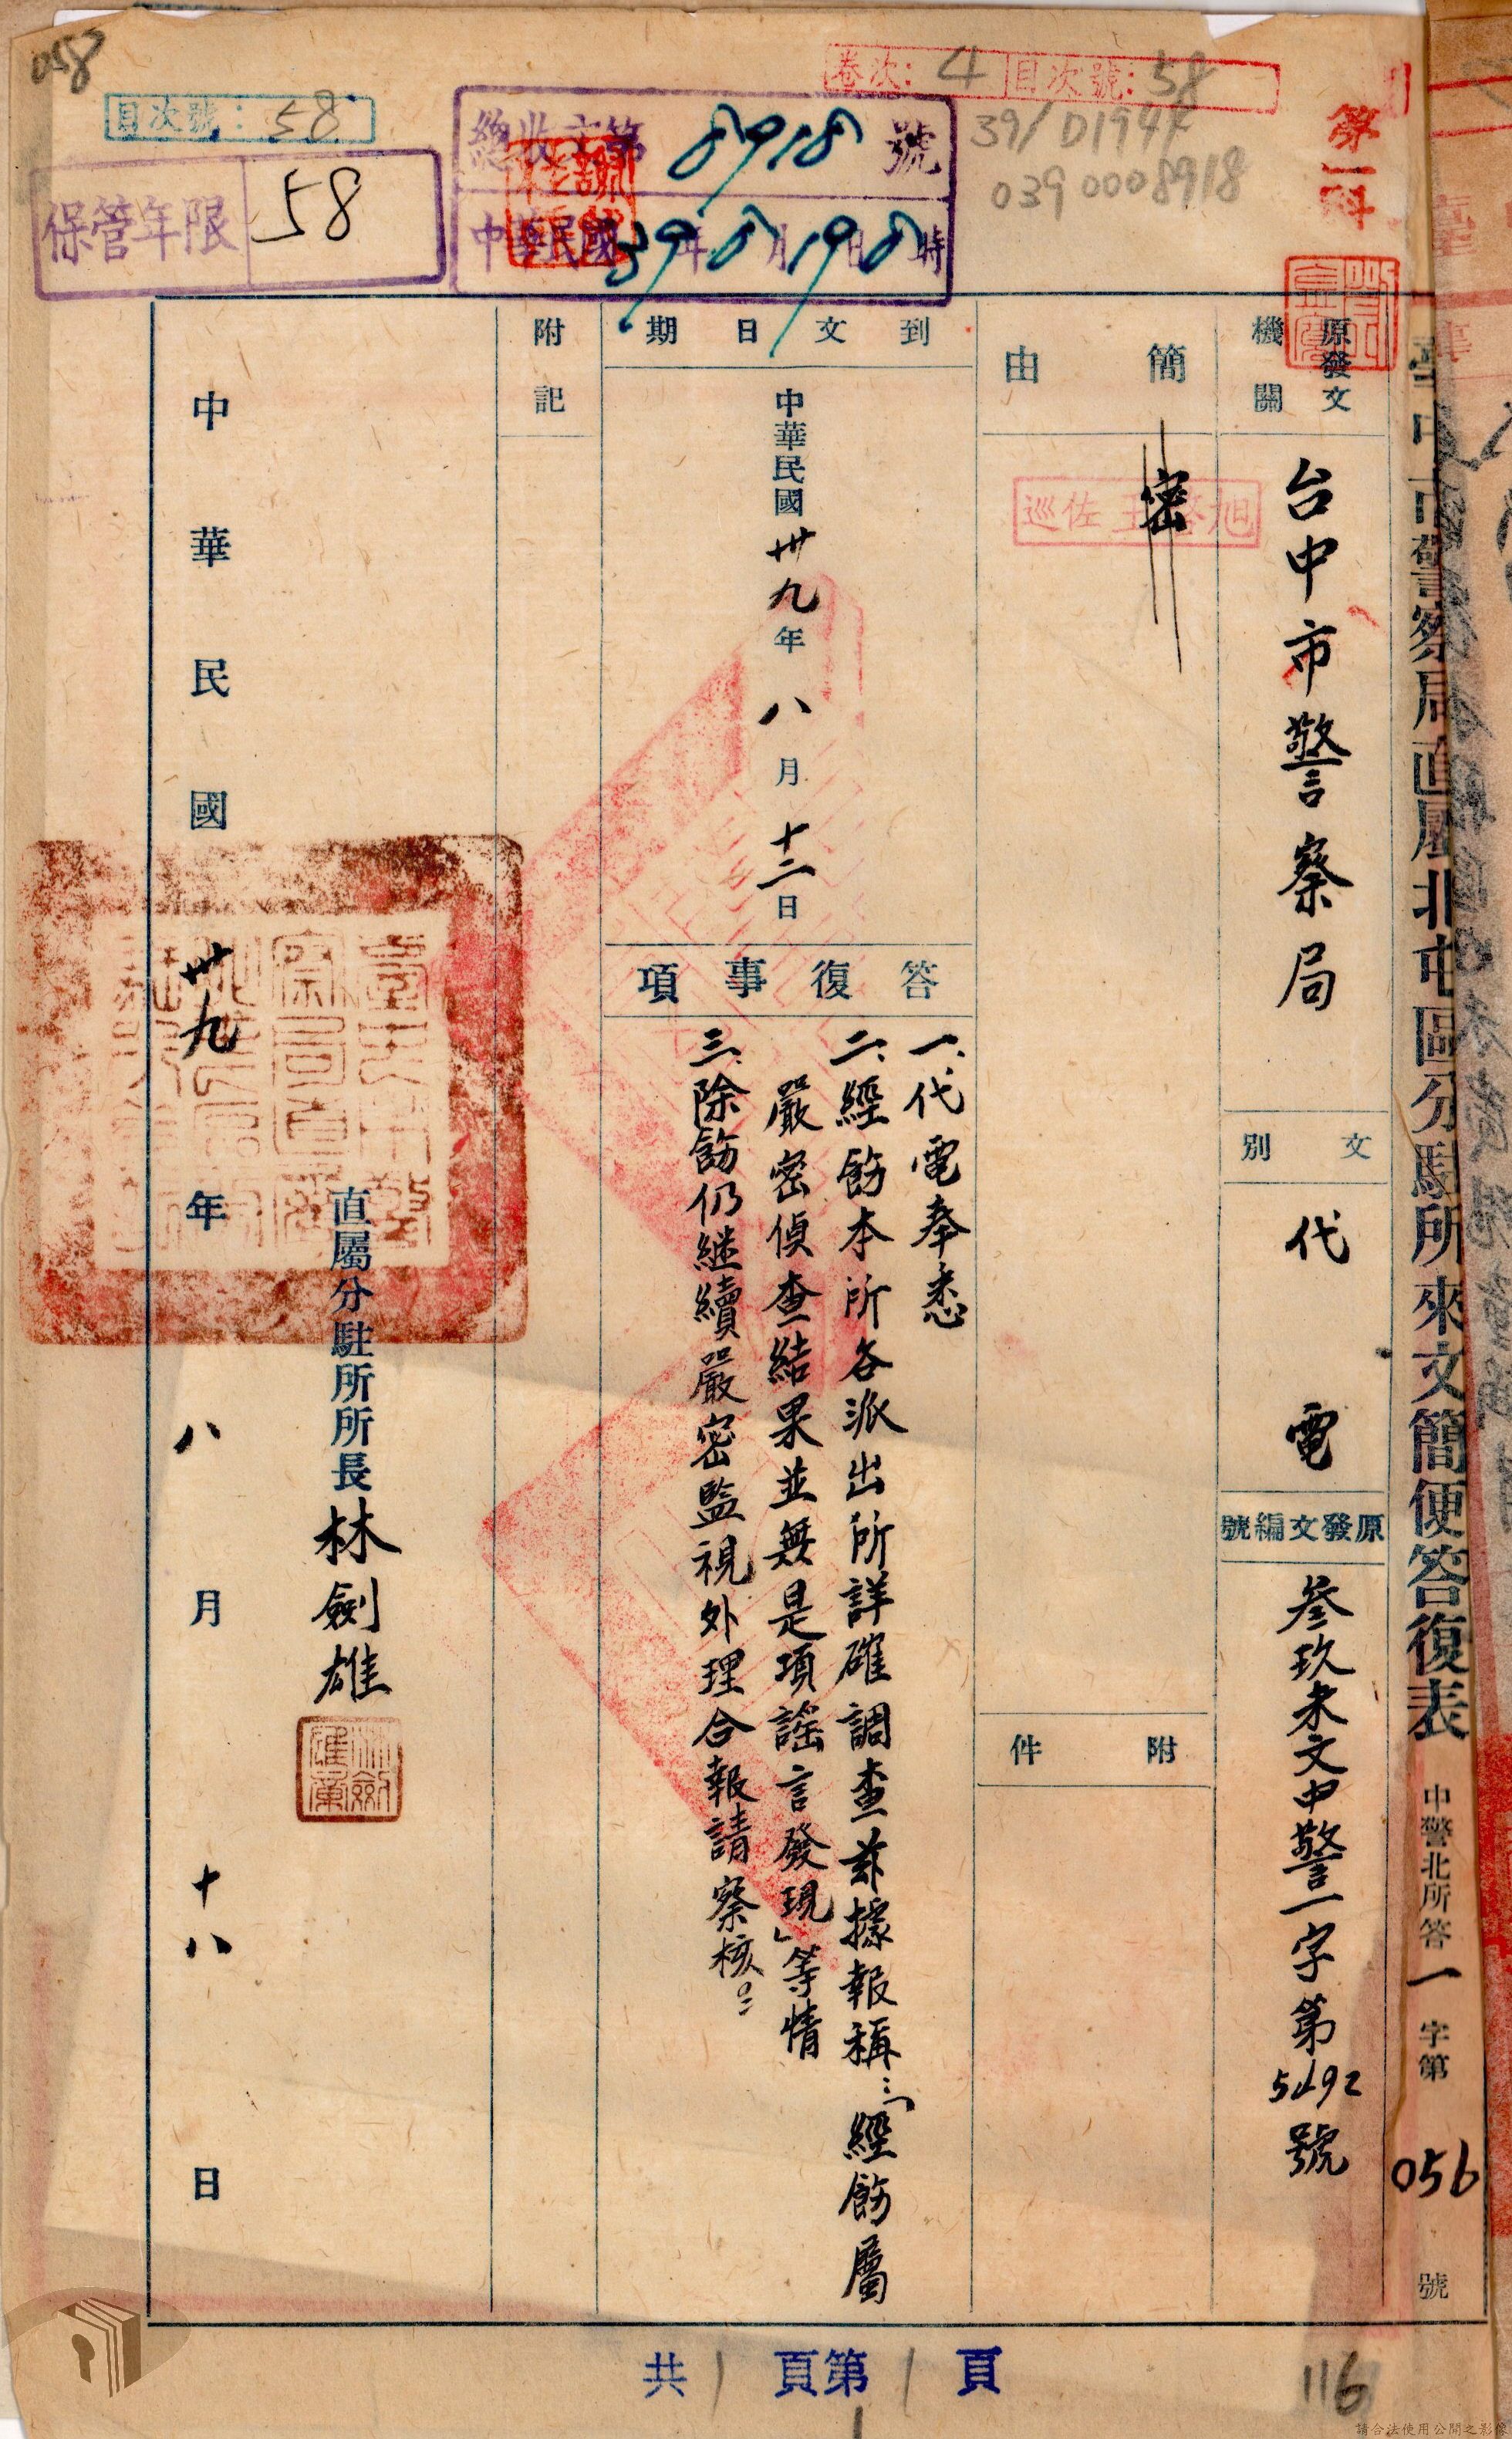 058
目次號：58
卷次：4 目次號：58
保管年限 58
總收文第8918號
中華民國39年8月19日8時
39/D194/
0390008918
第一科
臺中市警察局直屬北屯區分駐所來文簡便答復表
中警北所答一字第056號
原發文機關
台中市警察局
文別
代電
原發文編號
叄玖未文中警一字第5492號
簡由
密
巡佐王
附件
到文日期
中華民國卅九年八月十二日
答復事項
一、代電奉悉
二、經飭本所各派出所詳確調查茲據報稱：「經飭屬
嚴密偵查結果並無是項謠言發現」等情
三、除飭仍継續嚴密監視外理合報請察核。
附記
直屬分駐所所長林劍雄
中華民國卅九年八月十八日
共1頁第1頁
116
請合法使用公開之影像